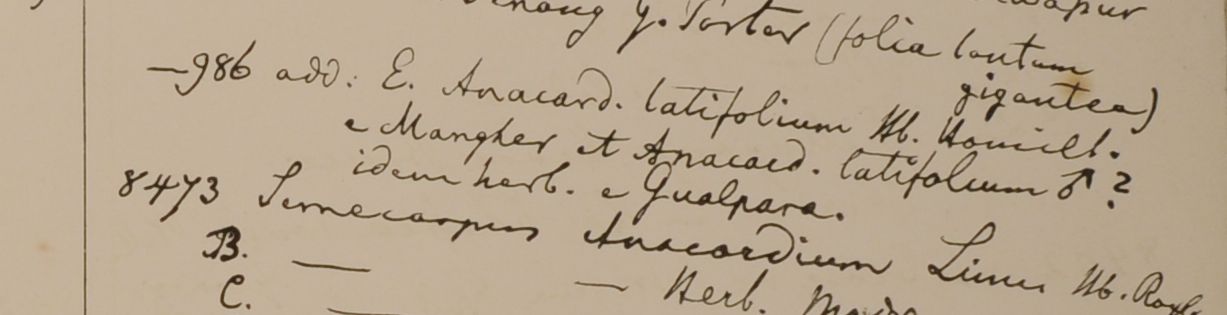 G. Porter (folia tantum
gigantea)
—986 add: E. Anacard. latifolium Hb. Hamilt.
e Mangher et Anacard. latifolium ♂ ?
idem herb. e Gualpara.
8473 Semecarpus Anacardium Linn Hb. Royle
B. — — Herb.
C. —